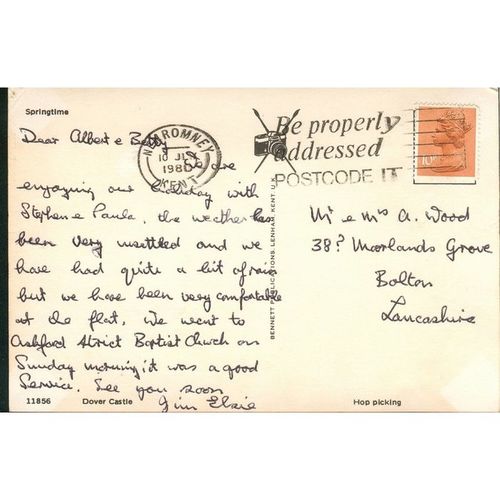 Springtime
Dear Albert & Betty
We are
enjoying our holiday with
Stephen & Paula, the weather has
been very unsettled and we
have had quite a bit of rain
but we have been very comfortable
at the flat, we went to
Ashford Strict Baptist Church on
Sunday morning, it was a good
Service. See you soon
Jim Elsie
11856 Dover Castle
NEW ROMNEY
10 JLY
1980
KENT
Be properly
addressed
POSTCODE IT
BENNETT PUBLICATIONS, LENHAM, KENT. U.K.
Mr & Mrs A. Wood
38? Moorlands Grove
Bolton
Lancashire
Hop picking